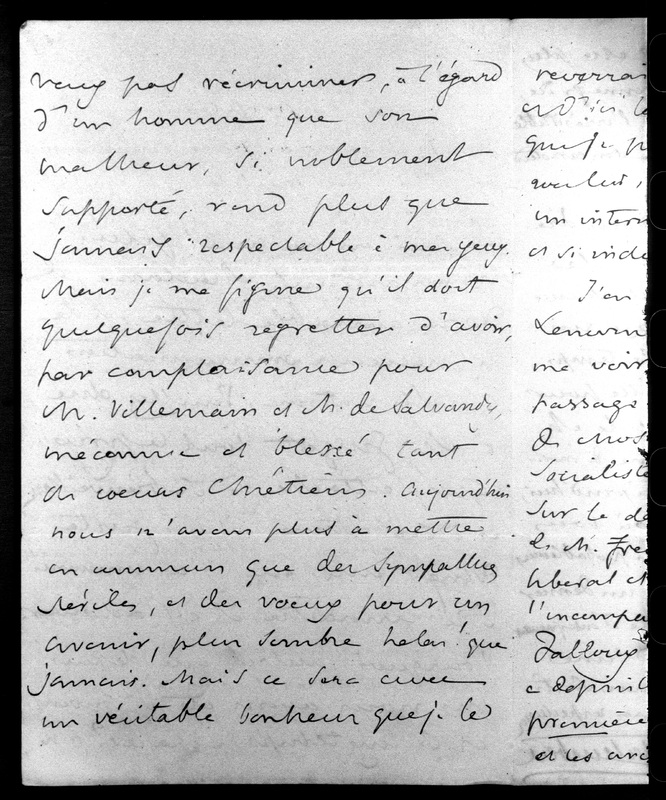 veux pas récriminer, à l'égard
d'un homme que son
malheur, si noblement
supporté, rend plus que
jamais respectable à mes yeux.
Mais je me figure qu'il doit
quelquefois regretter d'avoir,
par complaisance pour
M. Villemain et M. de Salvandy,
méconnu et blessé tant
de coeurs Chrétiens. Aujourd'hui
nous n'avons plus à mettre
en commun que des sympathies
stériles, et des voeux pour un
avenir, plus sombre helas! que
jamais. Mais ce sera avec
un véritable bonheur que je le
reverrai
et d'ici le
que je p
voulus,
un intern
et si inde
J'en
Lenorm
me voir
passage
de chos
Socialiste
sur le de
de M. Fre
liberal et
l'incompa
Falloux
a dépouil
première
et les arc